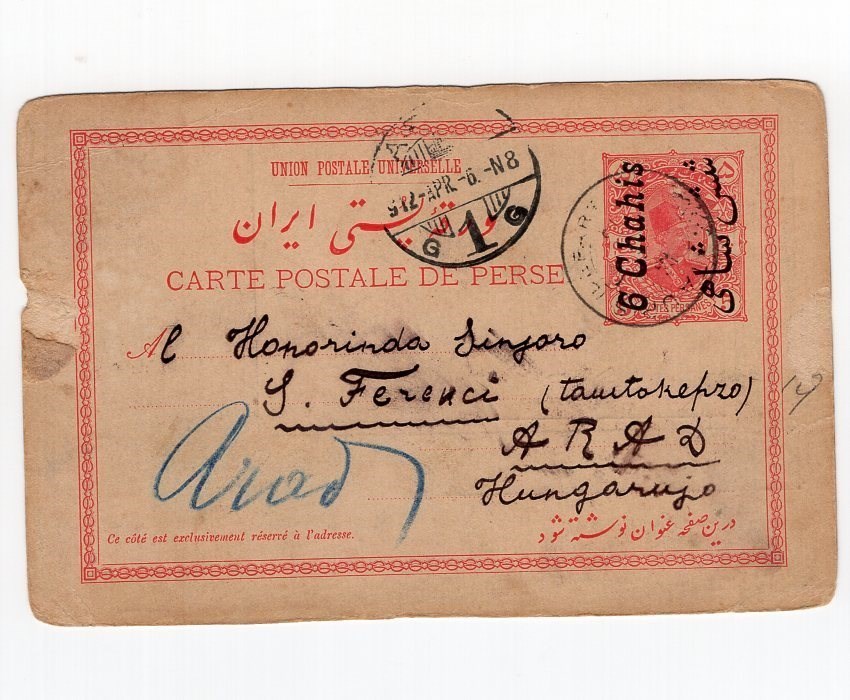 UNION POSTALE UNIVERSELLE
ایران
CARTE POSTALE DE PERSE
6 Chahis
شش شاهی
912-APR.-6.-N8
G 1 G
Al Honorinda Sinjoro
S. Ferenci (tanitokepzo)
ARAD
Hungarujo
Arad
Ce côté est exclusivement réservé à l'adresse.
درین صفحه عنوان نوشته شود